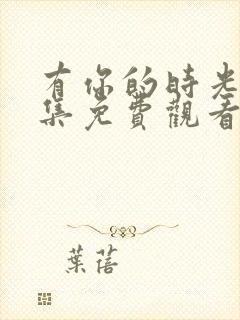 有你的时光
集免費觀看
葉蓓